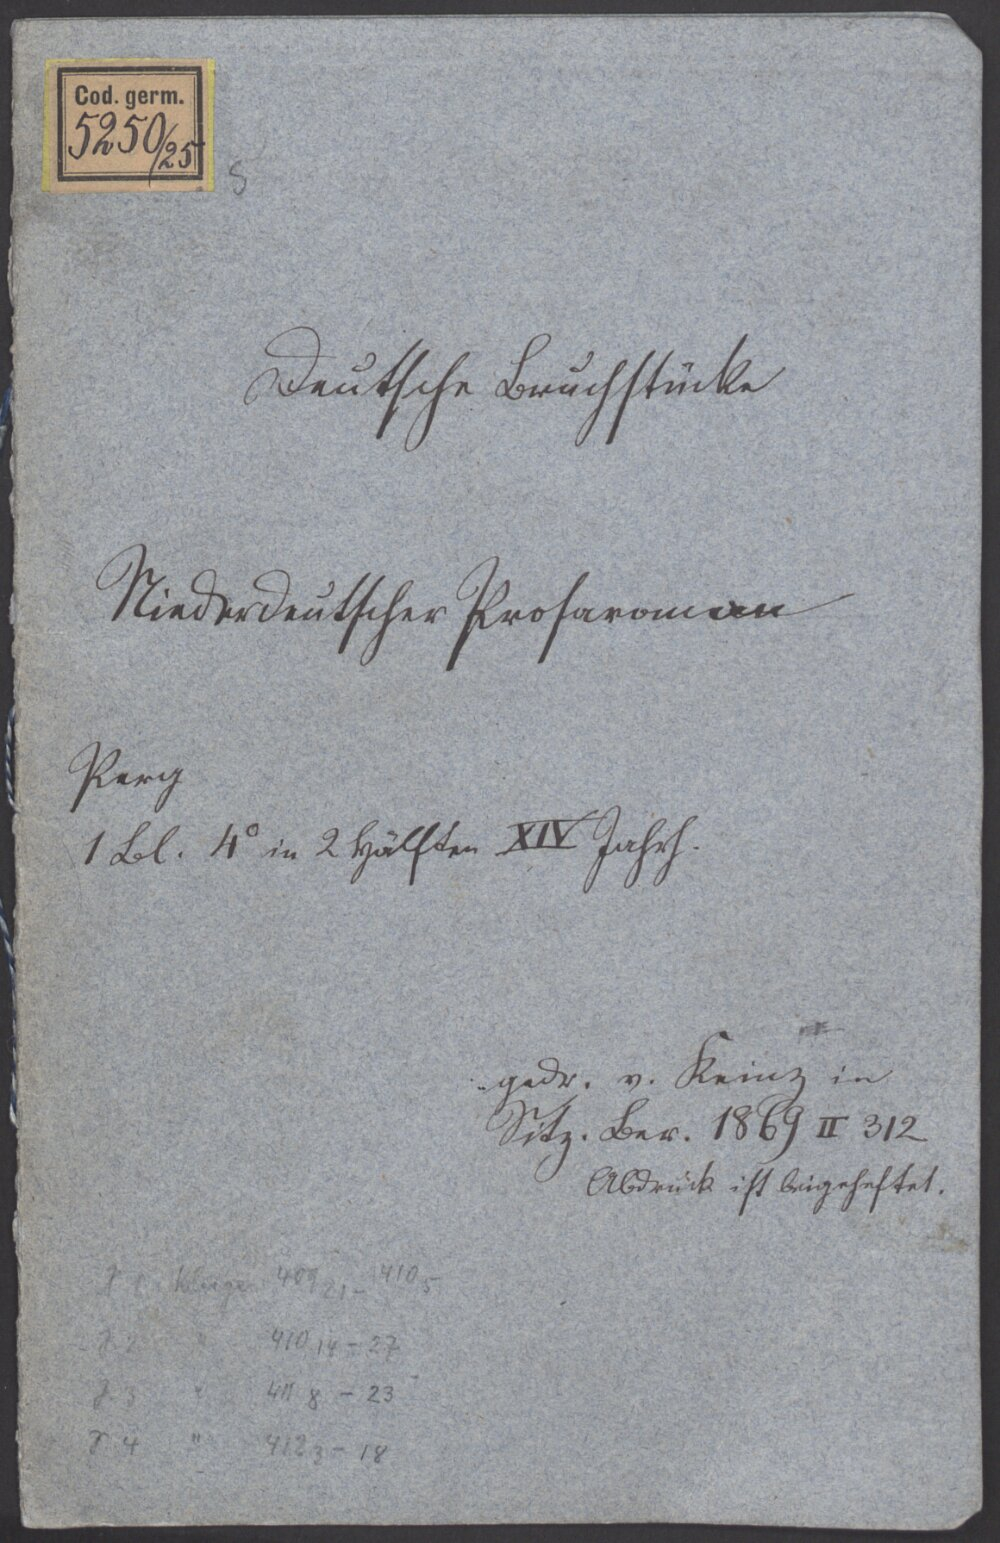 Cod. germ.
5250/25
S
Deutsche Bruchstücke
Niederdeutscher Prosaroman
Perg
1 Bl. 4° in 2 Hälften XIV Jahrh.
gedr. v. Keinz in
Sitz. Ber. 1869 II 312
Abdruck ist beigeheftet.
1 Kluge 409 21 - 410 5
2 " 410 14 - 27
3 " 411 8 - 23
4 " 412 3 - 18